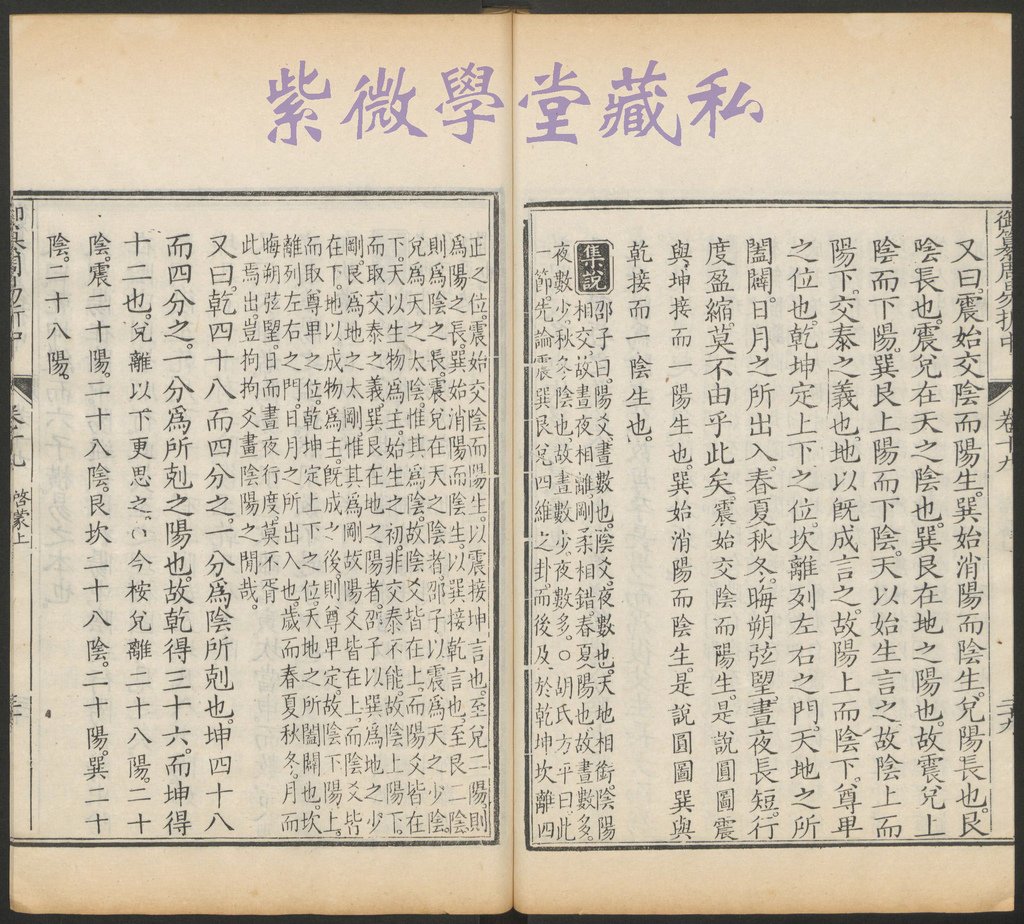 紫微學堂藏私
御纂周易折中
卷十九
又曰。震始交陰而陽生。巽始消陽而陰生。兌陽長也。艮
陰長也。震兌在天之陰也。巽艮在地之陽也。故震兌上
陰而下陽。巽艮上陽而下陰。天以始生言之。故陰上而
陽下。交泰之義也。地以既成言之。故陽上而陰下。尊卑
之位也。乾坤定上下之位。坎離列左右之門。天地之所
闔闢。日月之所出入。春夏秋冬。晦朔弦望。晝夜長短。行
度盈縮。莫不由乎此矣。震始交陰而陽生。是說圓圖震
與坤接而一陽生也。巽始消陽而陰生。是說圓圖巽與
乾接而一陰生也。
集說
邵子曰。陽爻。晝數也。陰爻。夜數也。天地相銜。陰陽
相交。故晝夜相離。剛柔相錯。春夏陽也。故晝數多。
夜數少。秋冬陰也。故晝數少。夜數多。○胡氏方平曰。此
一節。先論震巽艮兌四維之卦。而後及於乾坤坎離四
正之位。震始交陰而陽生。以震接坤言也。至兌二陽。則
爲陽之長。巽始消陽而陰生。以巽接乾言也。至艮二陰。
則爲陰之長。震兌在天之陰者。邵子以震爲天之少陰。
兌爲天之太陰。惟其爲陰。故陰爻皆在上而陽爻皆在
下。天以生物爲主。始生之初。非交泰不能。故陰上陽下。
而取交泰之義。巽艮在地之陽者。邵子以巽爲地之少
剛。艮爲地之太剛。惟其爲剛。故陽爻皆在上。而陰爻皆
在下。地以成物爲主。既成之後。則尊卑定。故陰下陽上。
而取尊卑之位。乾坤定上下之位。天地之所闔闢也。坎
離列左右之門。日月之所出入也。歲而春夏秋冬。月而
晦朔弦望。日而晝夜行度。莫不胥
此焉出。豈拘拘爻畫陰陽之閒哉。
又曰。乾四十八而四分之。一分爲陰所剋也。坤四十八
而四分之。一分爲所剋之陽也。故乾得三十六。而坤得
十二也。兌離以下更思之。○今按兌離二十八陽。二十
陰。震二十陽。二十八陰。艮坎一十八陰。二十陽。巽二十
陰。二十八陽。
卷十九
啓蒙上